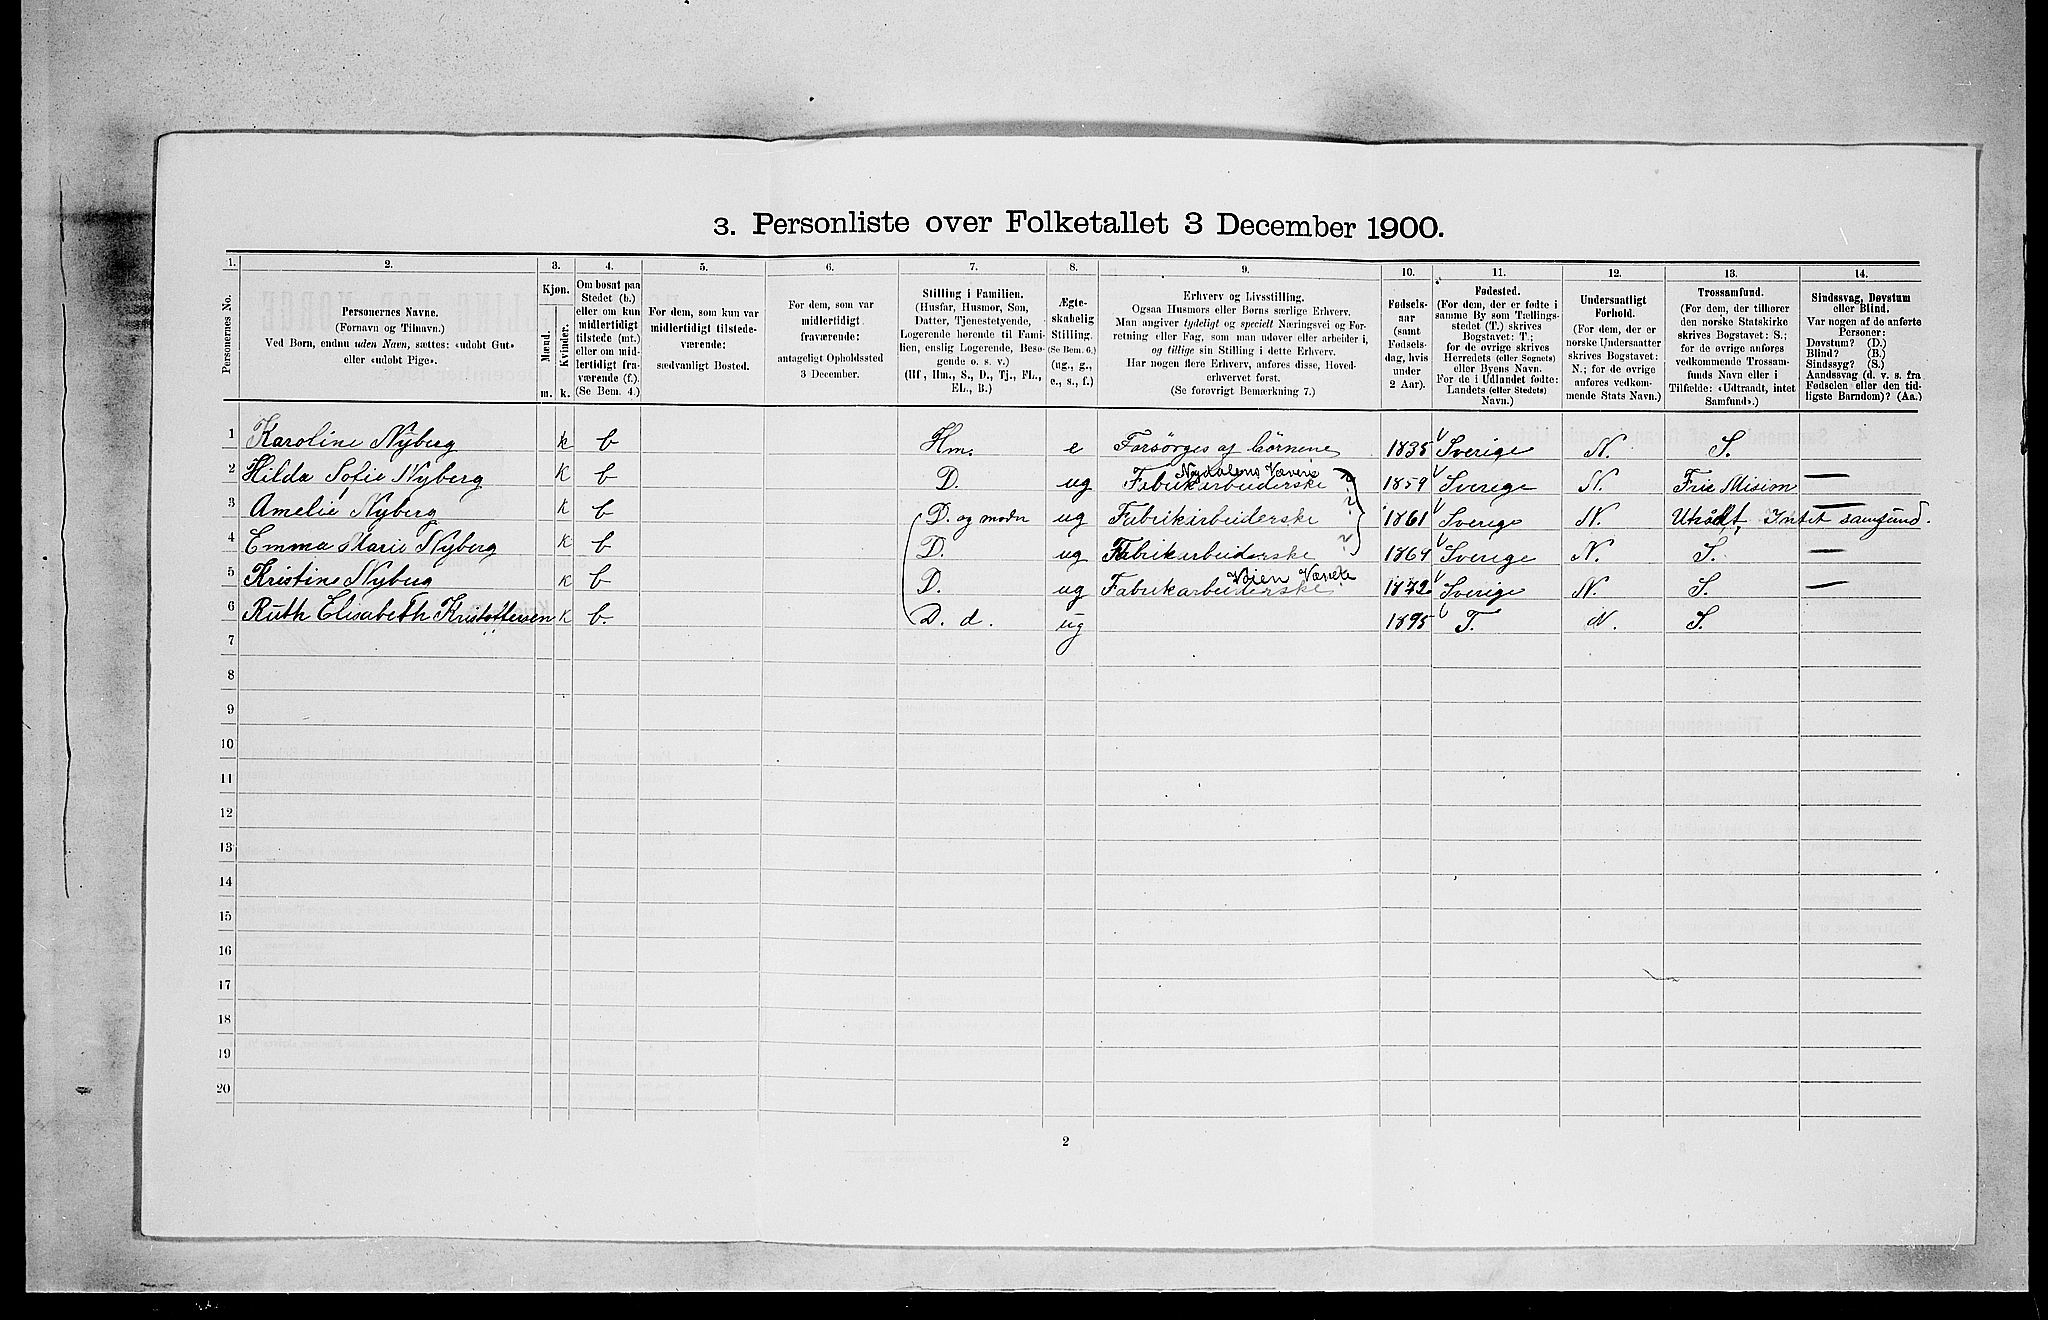 3. Personliste over Folketallet 3 December 1900.
1. 2. 3. 4. 5. 6. 7. 8. 9. 10. 11. 12. 13. 14.
Personernes No.
Personernes Navne.
(Fornavn og Tilnavn.)
Ved Børn, endnu uden Navn, sættes: «udøbt Gut»
eller «udøbt Pige».
Kjøn.
Mænd.
Kvinder.
m. k.
Om bosat paa
Stedet (b.)
eller om kun
midlertidigt
tilstede (mt.)
eller om mid-
lertidigt fra-
værende (f.).
(Se Bem. 4.)
For dem, som kun var
midlertidigt tilstede-
værende:
sædvanligt Bosted.
For dem, som var
midlertidigt
fraværende:
antageligt Opholdssted
3 December.
Stilling i Familien.
(Husfar, Husmor, Søn,
Datter, Tjenestetyende,
Logerende hørende til Fami-
lien, enslig Logerende, Besø-
gende o. s. v.)
(Hf, Hm., S., D., Tj., FL.,
EL., B.)
Ægte-
skabelig
Stilling.
(Se Bem. 6.)
(ug., g.,
e., s., f.)
Erhverv og Livsstilling.
Ogsaa Husmors eller Børns særlige Erhverv.
Man angiver tydeligt og specielt Næringsvei og For-
retning eller Fag, som man udøver eller arbeider i,
og tillige sin Stilling i dette Erhverv.
Har nogen flere Erhverv, anføres disse, Hoved-
erhvervet først.
(Se forøvrigt Bemærkning 7.)
Fødsels-
aar
(samt
Fødsels-
dag, hvis
under
2 Aar).
Fødested.
(For dem, der er fødte i
samme By som Tællings-
stedet (T.) skrives
Bogstavet: T.;
for de øvrige skrives
Herredets (eller Sognets)
eller Byens Navn.
For de i Udlandet fødte:
Landets (eller Stedets)
Navn.)
Undersaatligt
Forhold.
(For dem, der er
norske Undersaatter
skrives Bogstavet:
N.; for de øvrige
anføres vedkom-
mende Stats Navn.)
Trossamfund.
(For dem, der tilhører
den norske Statskirke
skrives Bogstavet: S.;
for de øvrige anføres
vedkommende Trossam-
funds Navn eller i
Tilfælde: «Udtraadt, intet
Samfund».)
Sindssvag, Døvstum
eller Blind.
Var nogen af de anførte
Personer:
Døvstum? (D.)
Blind? (B.)
Sindssyg? (S.)
Aandssvag (d. v. s. fra
Fødselen eller den tid-
ligste Barndom)? (Aa.)
1 Karoline Nyberg k b Hm. e Forsørges af børnene 1835 Sverige N. S.
Nydalens Væveri
2 Hilda Sofie Nyberg k b D. ug Fabrikarbeiderske ? 1859 Sverige N. Frie Mision —
3 Amelie Nyberg k b D. og moder ug Fabrikarbeiderske ? 1861 Sverige N. Utrådt, Intet samfund. —
4 Emma Marie Nyberg k b D. ug Fabrikarbeiderske ? 1864 Sverige N. S. —
Vøien Væveri
5 Kristine Nyberg k b D. ug Fabrikarbeiderske 1872 Sverige N. S. —
6 Ruth Elisabeth Kristoffersen k b. D. d. ug 1895 T. N. S.
7
8
9
10
11
12
13
14
15
16
17
18
19
20
2